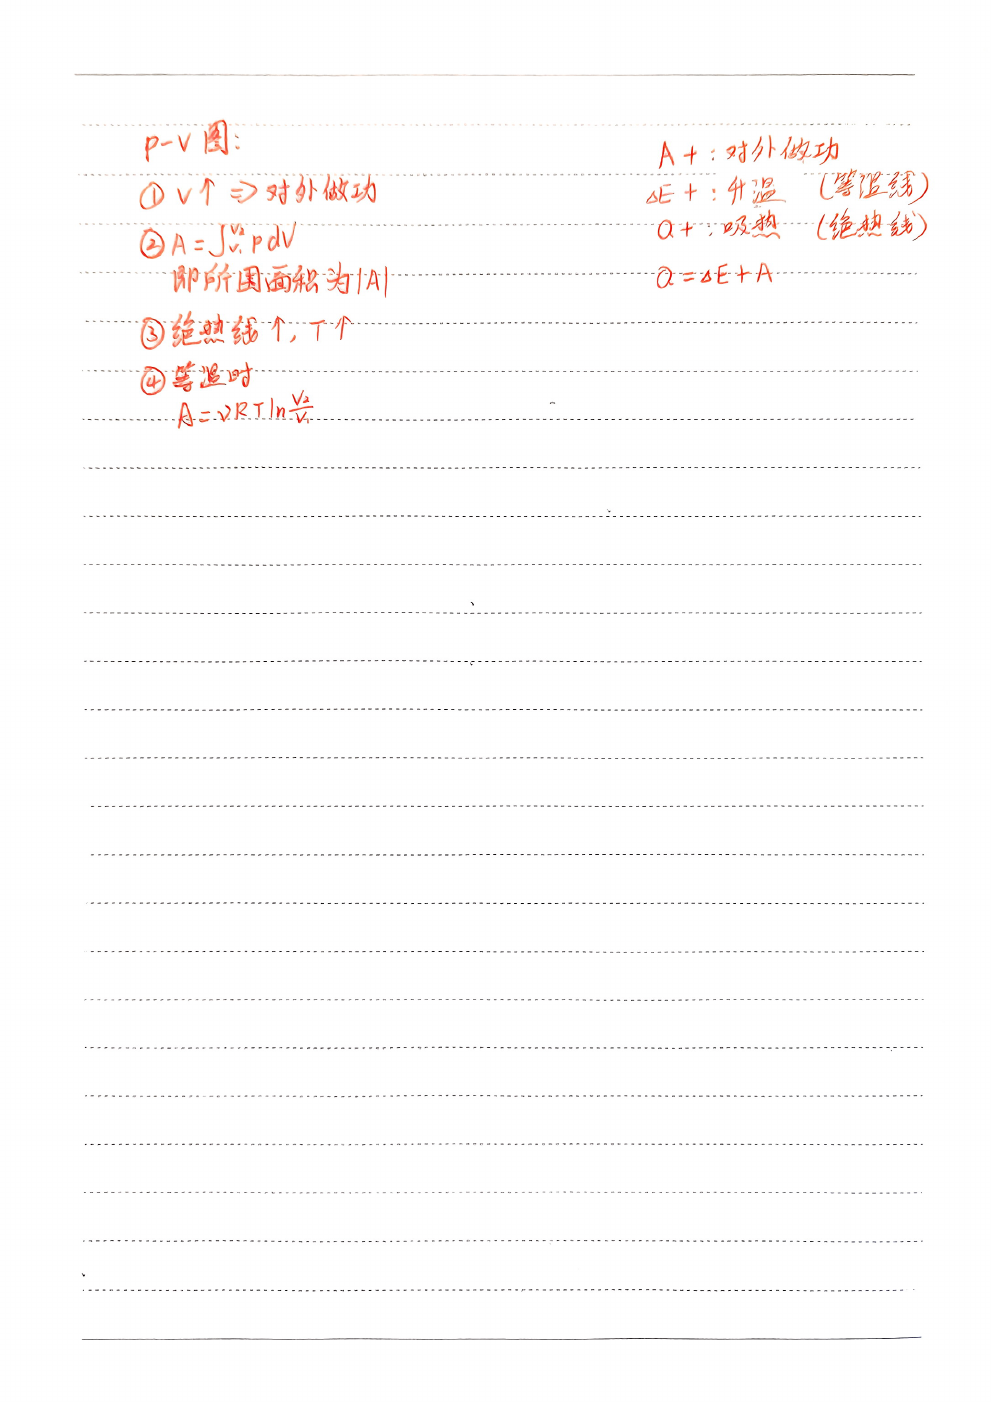 p-V 图:
① V↑ => 对外做功
② A=∫_{V₁}^{V₂} p dV
即所围面积为|A|
③ 绝热线↑, T↑
④ 等温时
A=νRT ln V₂/V₁
A+: 对外做功
ΔE+: 升温 (等温线)
Q+: 吸热 (绝热线)
Q=ΔE+A